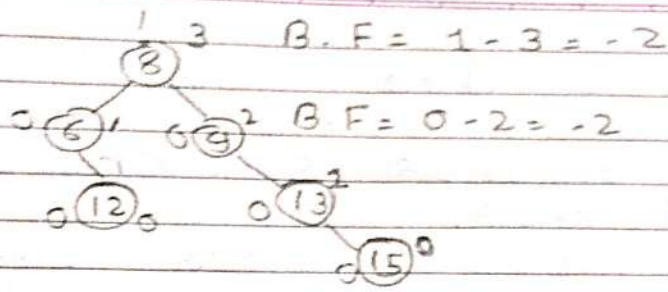 1
8 3 B.F = 1 - 3 = -2
0 6 1 0 9 2 B F = 0 - 2 = -2
0 12 0 0 13 1
0 15 0